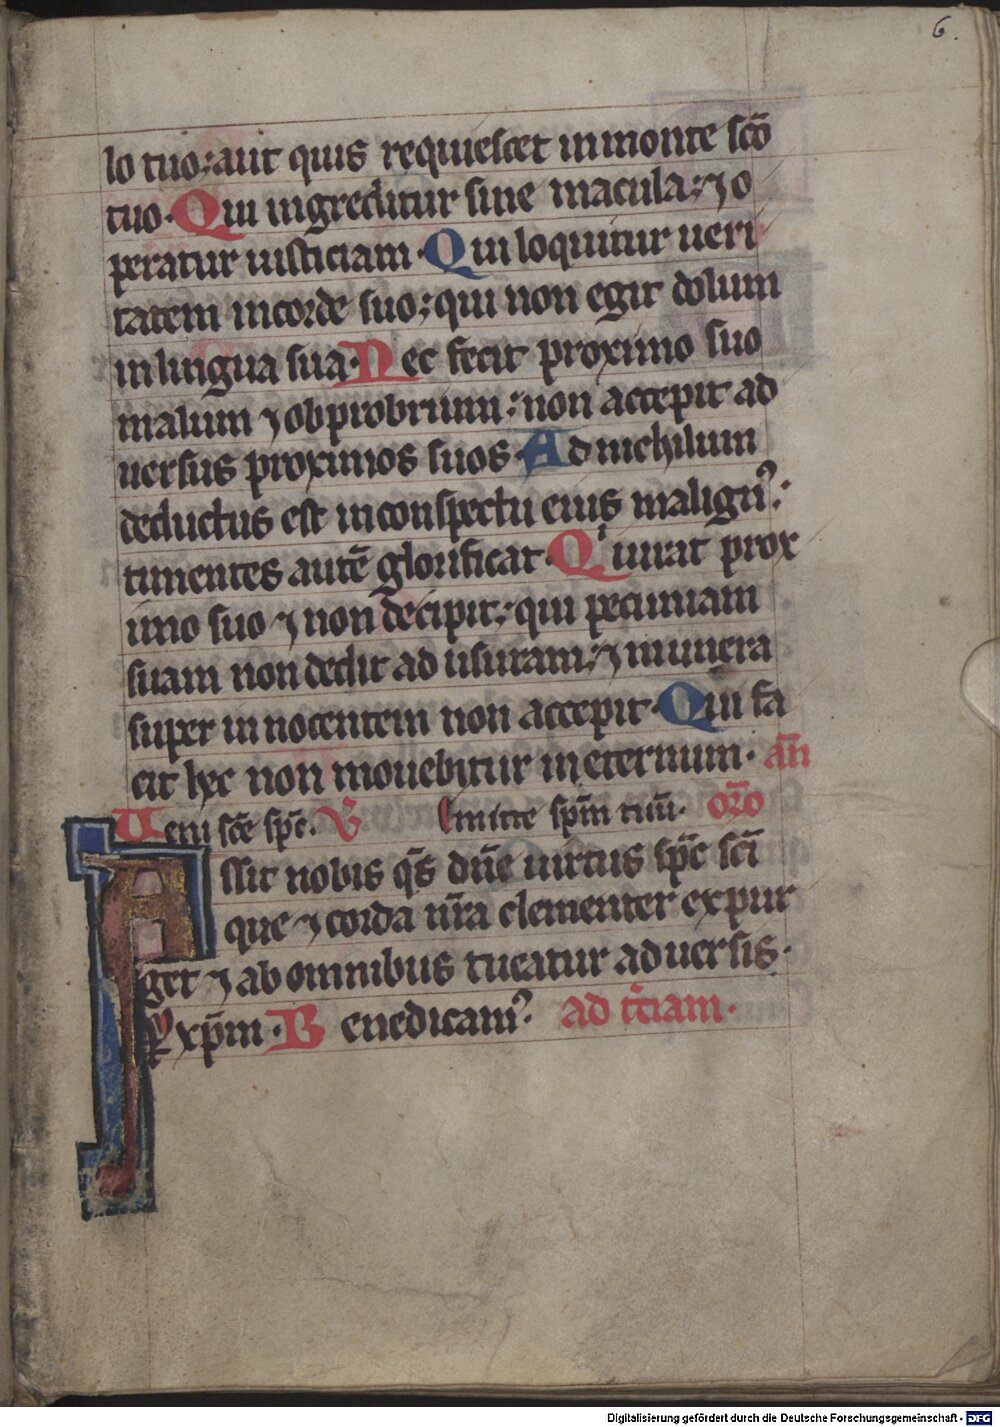 6.
lo tuo; aut quis requiescet in monte sc̄o
tuo. Qui ingreditur sine macula; ⁊ o
peratur iusticiam. Qui loquitur ueri
tatem in corde suo; qui non egit dolum
in lingua sua. Nec fecit proximo suo
malum ⁊ obprobrium; non accepit ad
uersus proximos suos. Ad nichilum
deductus est in conspectu eius malignꝰ;
timentes autē glorificat. Qͥ iurat prox
imo suo ⁊ non decipit; qui pecuniam
suam non dedit ad usuram; ⁊ munera
super innocentem non accepit. Qui fa
cit hec non mouebitur in eternum. an̄
Ueni sc̄e sp̄c. V̄ Emitte sp̄m tuū. or̄o
Assit nobis qs̄ dn̄e uirtus sp̄c sc̄i
que ⁊ corda nr̄a clementer expur
get ⁊ ab omnibus tueatur aduersis.
P xp̄m. Benedicamꝰ. ad t̄ciam.
Digitalisierung gefördert durch die Deutsche Forschungsgemeinschaft - DFG